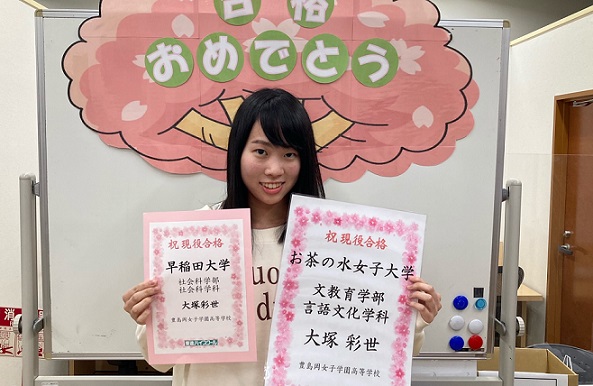 合格
おめでとう
祝 現役合格
早稲田大学
社会科学部
社会科学科
大塚彩世
豊島岡女子学園高等学校
祝 現役合格
お茶の水女子大学
文教育学部
言語文化学科
大塚 彩世
豊島岡女子学園高等学校
消